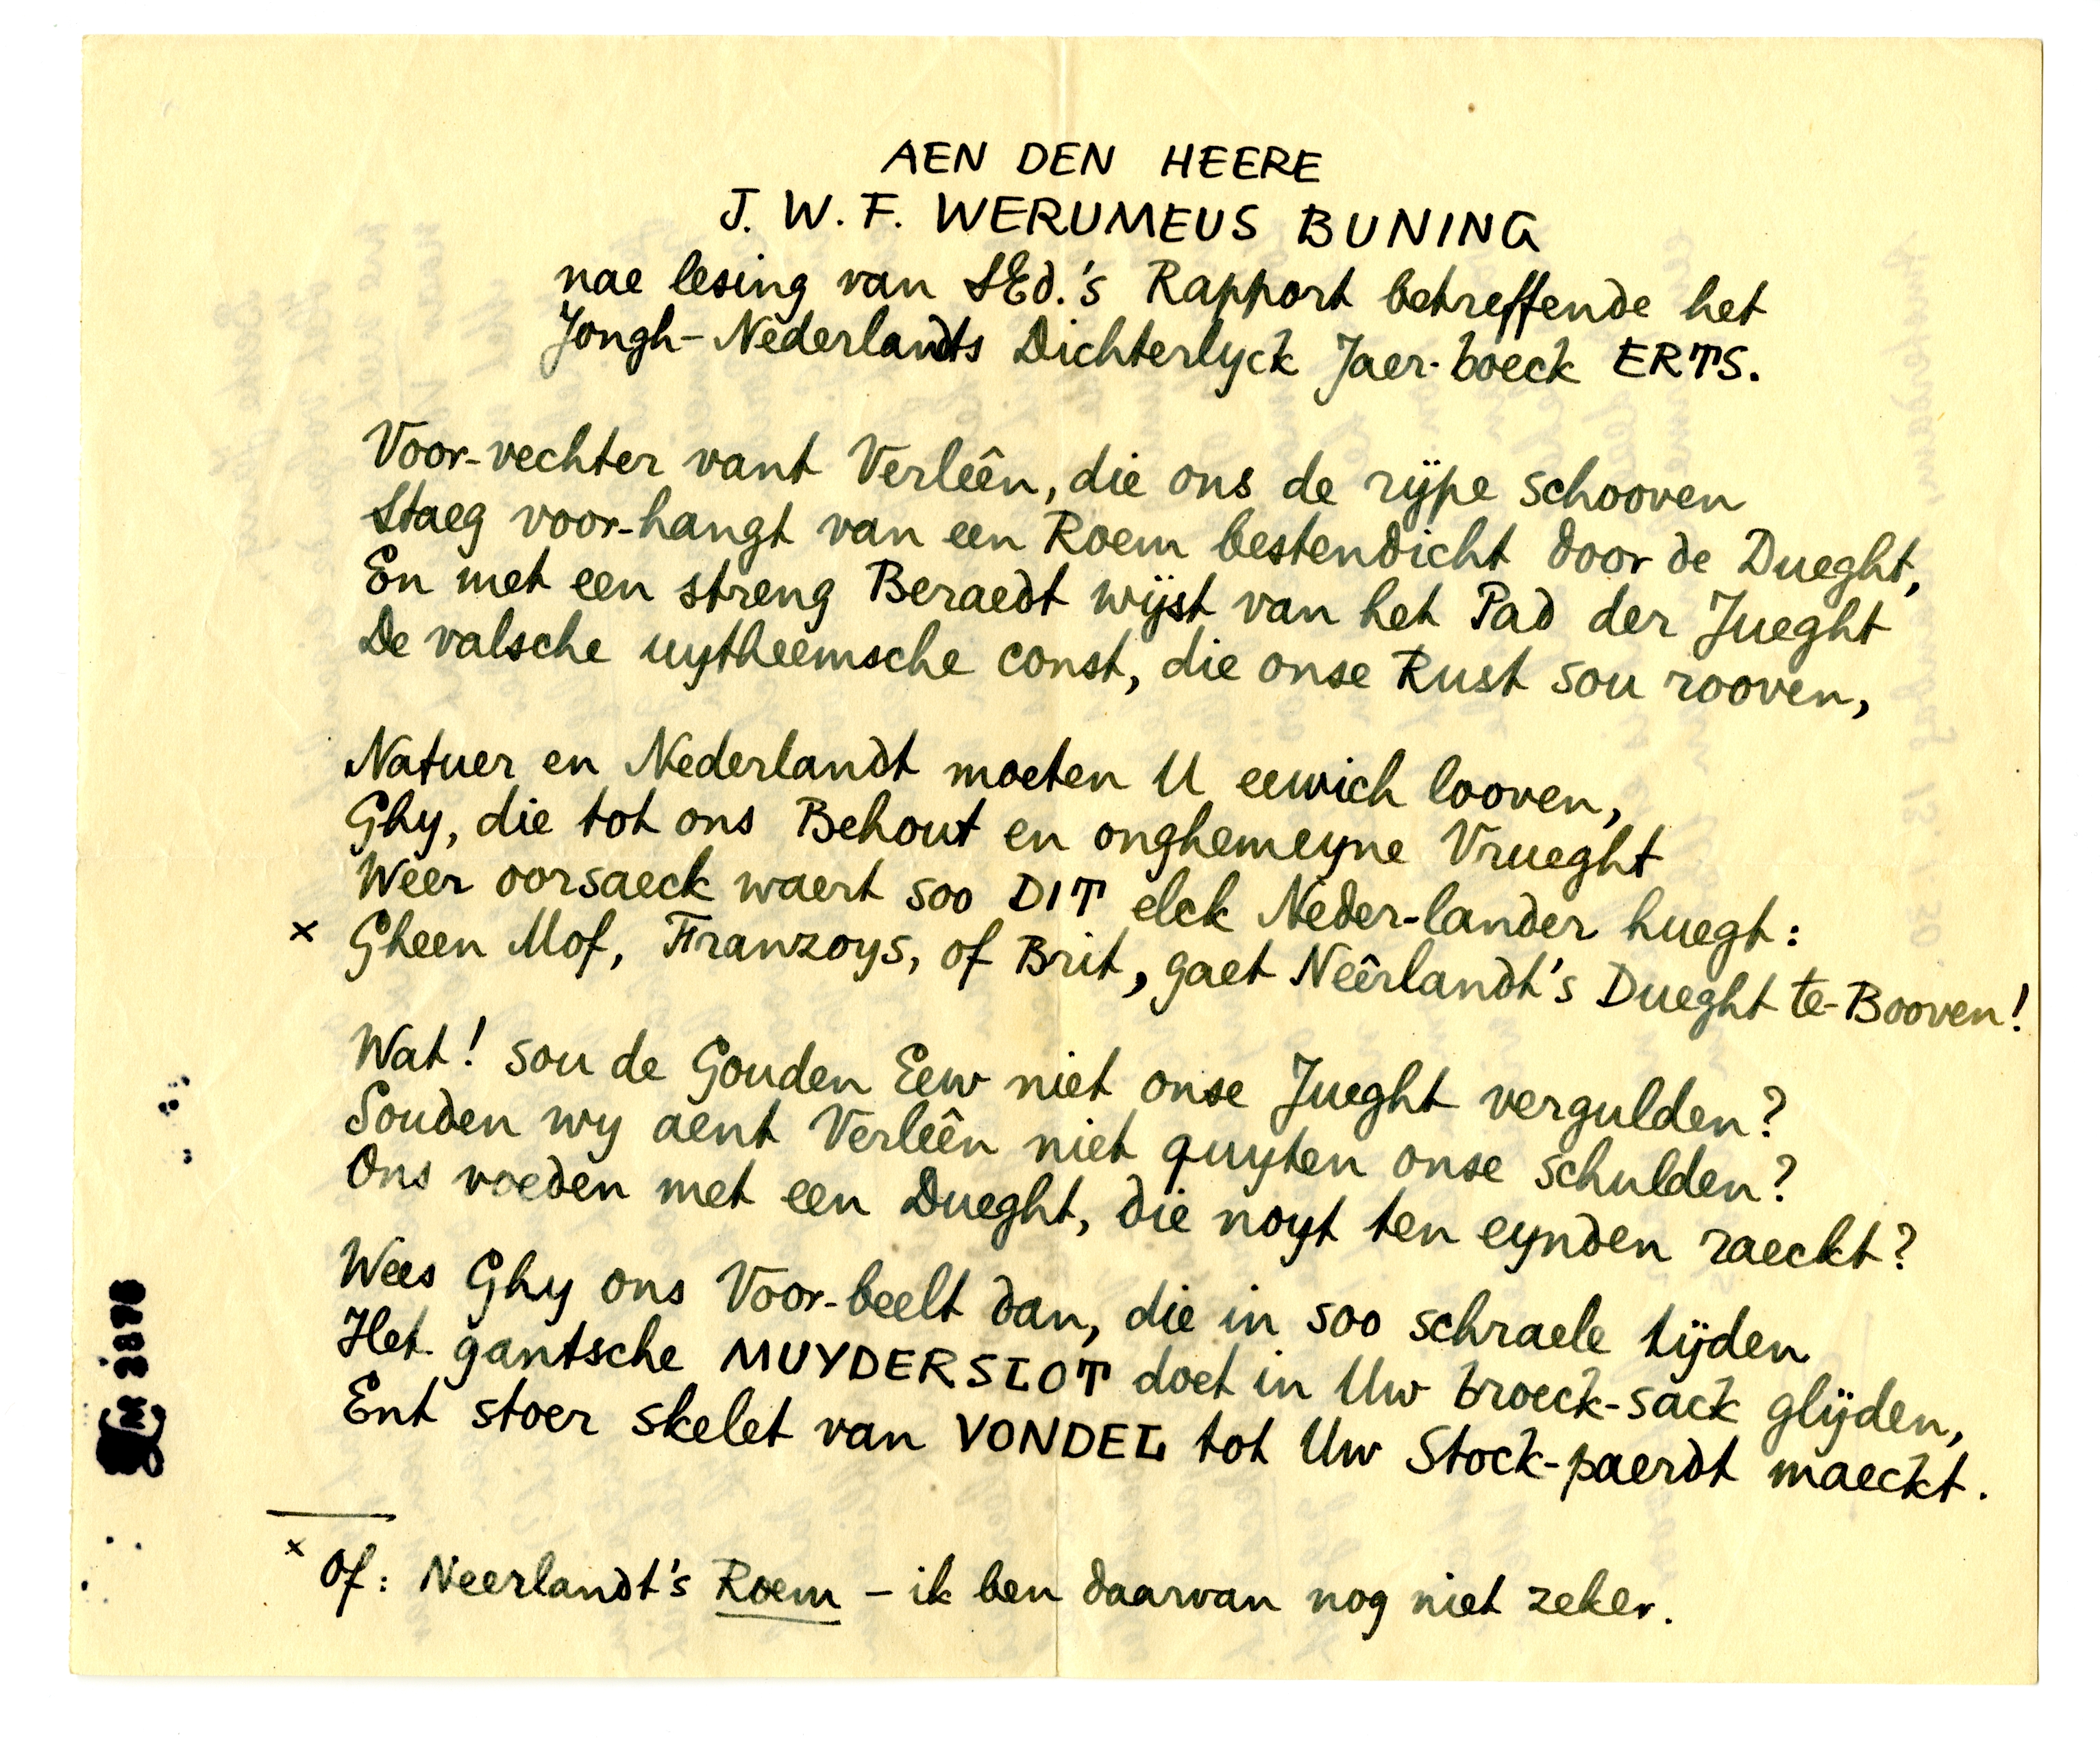 AEN DEN HEERE
J. W. F. WERUMEUS BUNING
nae lesing van SEd.'s Rapport betreffende het
Jongh-Nederlandts Dichterlyck Jaer-boeck ERTS.
Voor-vechter vant Verleên, die ons de rijpe schooven
Staeg voor-hangt van een Roem bestendicht door de Dueght,
En met een streng Beraedt wijst van het Pad der Jueght
De valsche uytheemsche const, die onse Rust sou rooven,
Natuer en Nederlandt moeten U eewich looven,
Ghy, die tot ons Behout en onghemeyne Vrueght
Weer oorsaeck waert soo DIT elck Neder-lander huegt:
x Gheen Mof, Franzoys, of Brit, gaet Neêrlandt's Dueght te-Booven!
Wat! sou de Gouden Eew niet onse Jueght vergulden?
Souden wy aent Verleên niet quyten onse schulden?
Ons voeden met een Dueght, die noyt ten eynden raeckt?
Wees Ghy ons Voor-beelt dan, die in soo schraele tijden
Het gantsche MUYDERSLOT doet in Uw broeck-sack glijden,
Ent stoer skelet van VONDEL tot Uw Stock-paerdt maeckt.
x Of: Neerlandt's Roem – ik ben daarvan nog niet zeker.